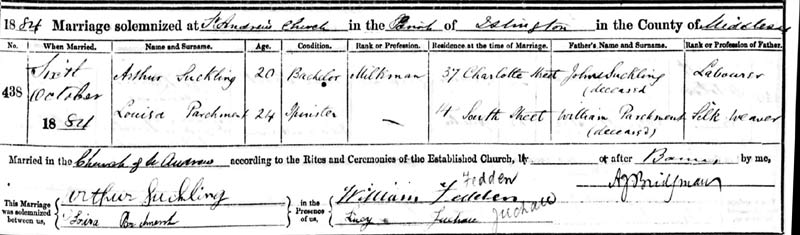 1884 Marriage solemnized at St Andrew's Church in the Parish of Islington in the County of Middlesex
No. When Married. Name and Surname. Age. Condition. Rank or Profession. Residence at the time of Marriage. Father's Name and Surname. Rank or Profession of Father.
438 Sixth October 1884 Arthur Suckling 20 Bachelor Milkman 37 Charlotte Street John Suckling (deceased Labourer
Louisa Parchment 24 Spinster — 4 South Street William Parchment (deceased) Silk Weaver
Married in the Church of St Andrew according to the Rites and Ceremonies of the Established Church, by — or after Banns by me,
This Marriage was solemnized between us, Arthur Suckling in the Presence of us, William Fedden Fedden A J Bridgman
Parchment Lucy Juchau Juchau